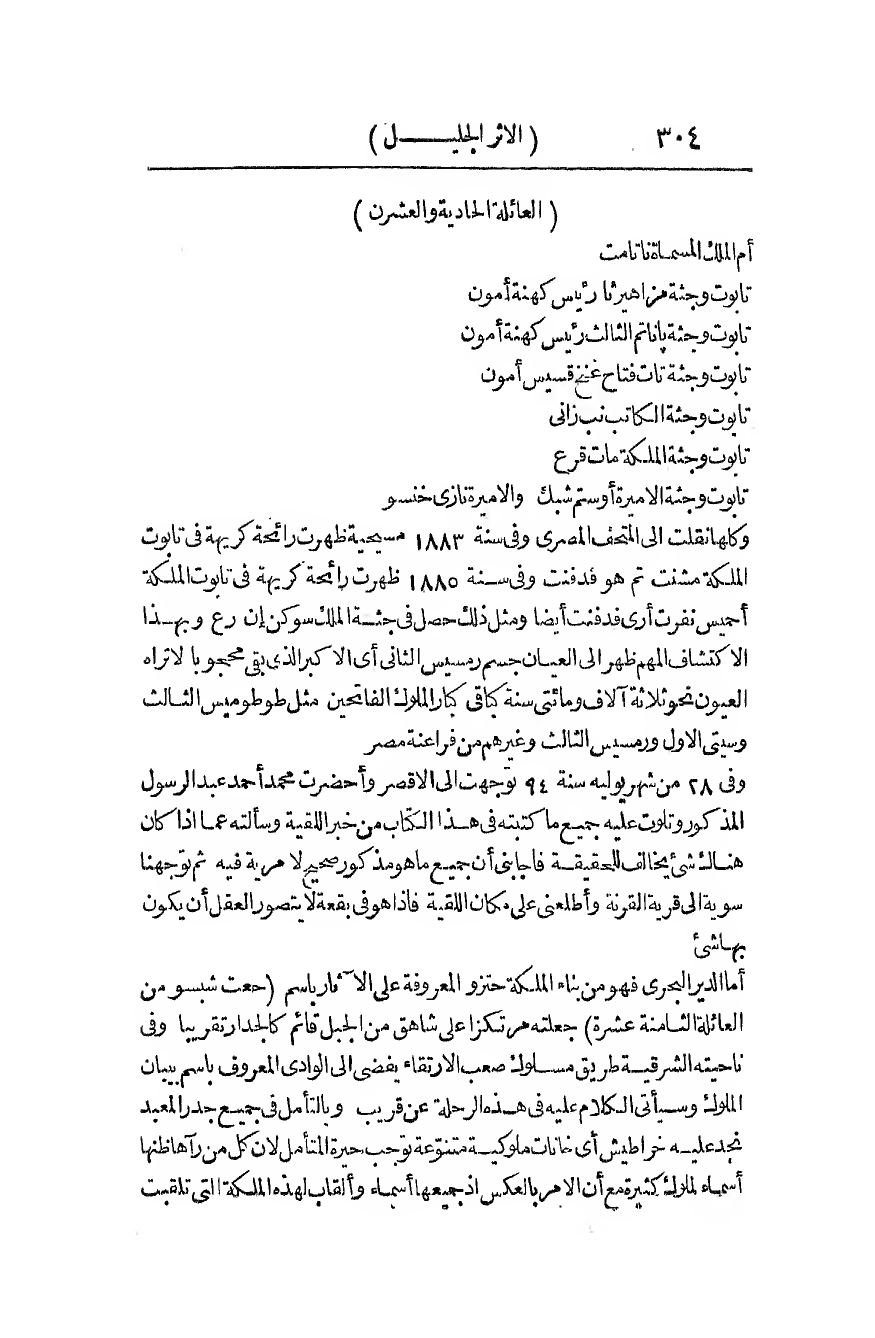 ٣٠٤ (الاثر الجليـــــل)
(العائلة الحادية والعشرن)
أم الملك المسماة ناتامت
تابوت وجثة مزاهيرتا رئيس كهنة أمون
تابوت وجثة پاناتم الثالث رئيس كهنة أمون
تابوت وجثة تات فتاح عنخ قسيس أمون
تابوت وجثة الكاتب نب زانى
تابوت وجثة الملكة مات قرع
تابوت وجثة الاميرة أوستم شبك والاميرة نازى خنسو
وكلها نقلت الى المتحف المصرى وفى سنة ١٨٨٣ مسيحية ظهرت رائحة كريهة فى تابوت
الملكة مشنت تم هو فدفنت وفى سـنة ١٨٨٥ ظهرت رائحة كريهة فى تابوت الملكة
أحميس نفرت أرى فدفنت أيضا ومثل ذلك حصل فى جثـة الملك سوكن إن رع وبهـذا
الاكتشاف المهم ظهر الى العيـان جسم رمسيس الثانى أى الاكبر الذى بقى محجوبا لا تراه
العيون نحو ثلاثة آلاف ومائتى سنة كباقى كبار الملوك الفاتحين مثل طوطوميس الثـالث
وسيتى الاول ورمسيس الثالث وغيرهم من فراعنة مصر
وفى ٢٨ من شهر يوليه سنة ٩٤ توجهت الى الاقصر وأحضرت محمد أحمد عبد الرسول
المذكور وتلوت عليه جميع ما كتبته فى هـذا الكتاب من خبر اللقية وسألته عمـا اذا كان
هنـاك شئ يخالف للحقيقـة فاجابنى أن جميع ما هو مذكور صحيح لا مرية فيه ثم توجهنا
سوية الى قرية القرنة وأطلعنى على مكان اللقية فاذا هو فى بقعة لا يتصور العقل أن يكون
بهـا شئ
أما الدير البحرى فهو من بناء الملكة حتزو المعروفة على الآثار باسم (حعت شبسو من
العائلة الثـامنة عشرة) جعلته مرتكزا على شاهق من الجبل قائم كالجدار تقريبا وفى
ناحيته الشرقيـة طريق مسـلوك صعب الارتقاء يفضى الى الوادى المعروف باسم بيبان
الملوك وسـيأتى الكلام عليه فى هـذه الرحلة عن قريب وبالتأمل فى جميع جدر المعبد
نجد عليـه خراطيش أى خانات ملوكيـة متنوعة توجب حيرة المتأمل لان كل من رآها ظنها
أسماء لملوك كثيرة مع أن الامر بالعكس اذ جميعها أسماء وألقاب لهذه الملكة التى تلقبت